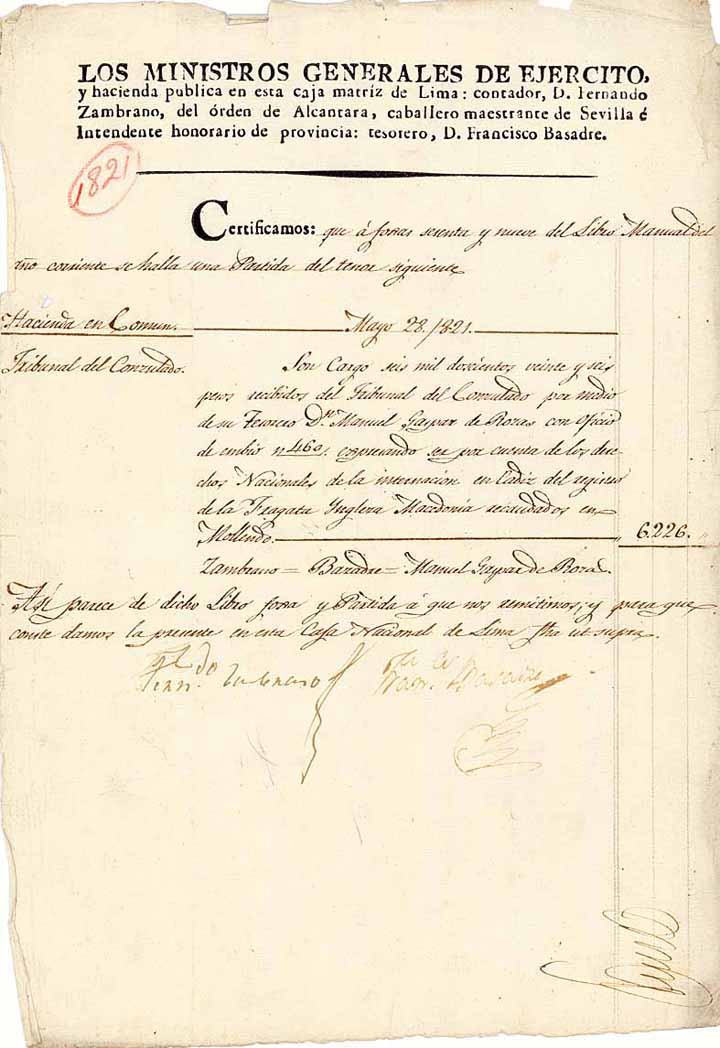 LOS MINISTROS GENERALES DE EJERCITO,
y hacienda publica en esta caja matríz de Lima: contador, D. Fernando
Zambrano, del órden de Alcantara, caballero maestrante de Sevilla é
Intendente honorario de provincia: tesorero, D. Francisco Basadre.
1821
Certificamos: que á foxas sesenta y nueve del Libro Manual del
año corriente se halla una Partida del tenor siguiente
Hacienda en Comun. Mayo 28./821.
Tribunal del Conzulado. Son Cargo seis mil doscientos veinte y seis
pesos recibidos del Tribunal del Conzulado por medio
de su Tesorero Dn. Manuel Gaspar de Rozas con Oficio
de embio n 460. expresando ser por cuenta de los dre-
chos Nacionales de la internacion en Cadiz del registro
de la Fragata Ynglesa Macedonia recaudados en
Mollendo. 6.226.
Zambrano = Bazadre = Manuel Gaspar de Rozas.
Asi parece de dicho Libro foxa y Partida á que nos remitimos; y para que
conste damos la presente en esta Casa Nacional de Lima fha ut supra.
Fern.do Zambrano Fran.co Basadre